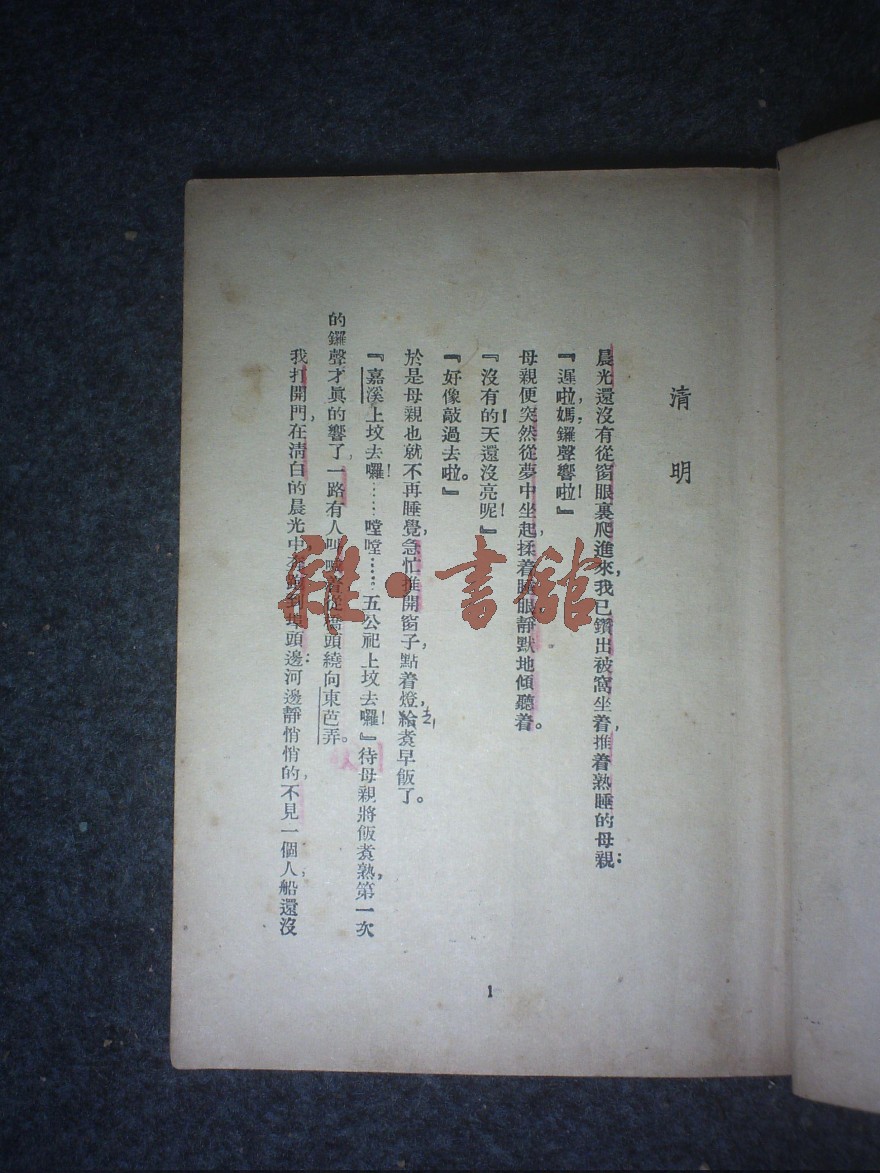 清明
晨光還沒有從窗眼裏爬進來，我已鑽出被窩坐着，推着熟睡的母親：
『遲啦，媽，鑼聲響啦！』
母親便突然從夢中坐起，揉着睡眼靜默地傾聽着。
『沒有的！天還沒亮呢！』
『好像敲過去啦。』
於是母親也就不再睡覺，急忙推開窗子，點着燈，給煑早飯了。
去
『嘉溪上坟去囉！……嘡嘡……五公祀上坟去囉！』待母親將飯煑熟，第一次
的鑼聲才眞的響了，一路有人叫喊着從橋頭繞向東芭弄。
我打開門，在淸白的晨光中奔到埠頭邊：河邊靜悄悄的，不見一個人，船還沒
1
雜·書館